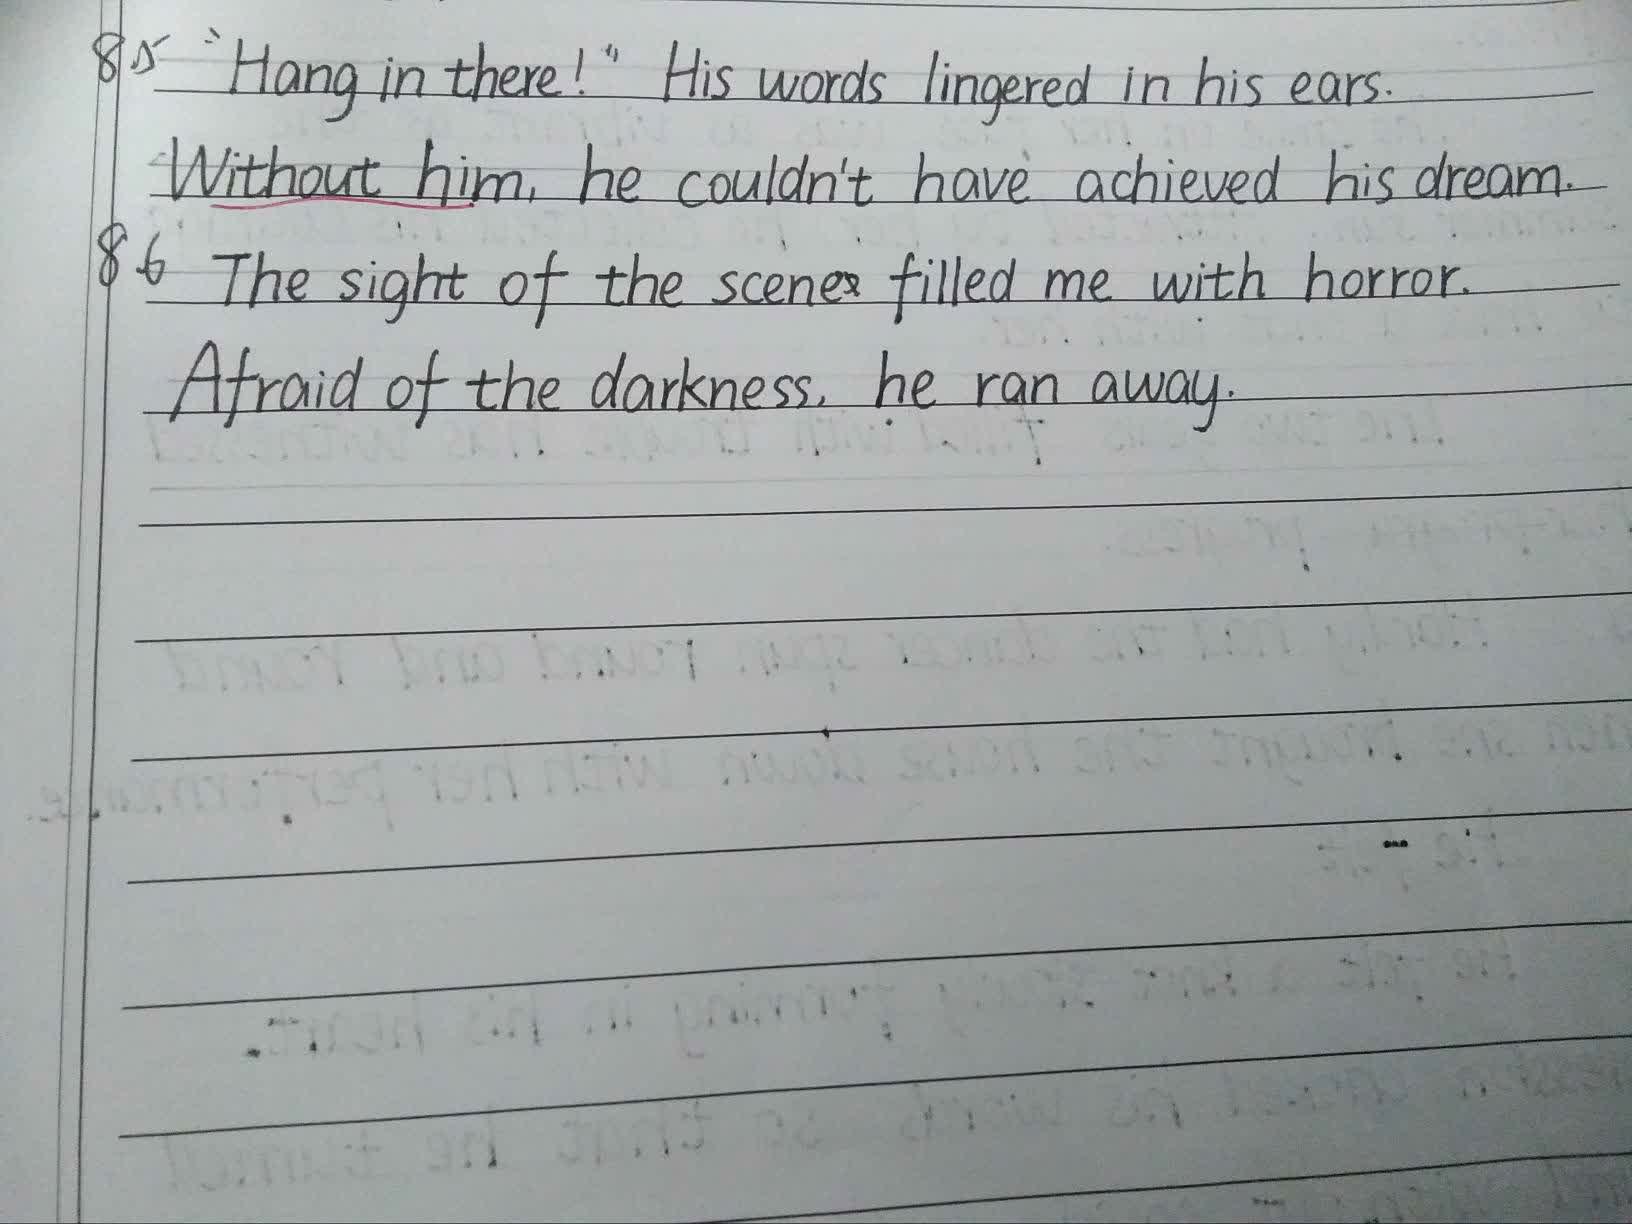 85 "Hang in there!" His words lingered in his ears.
Without him, he couldn't have achieved his dream.
86 The sight of the scene filled me with horror.
Afraid of the darkness, he ran away.